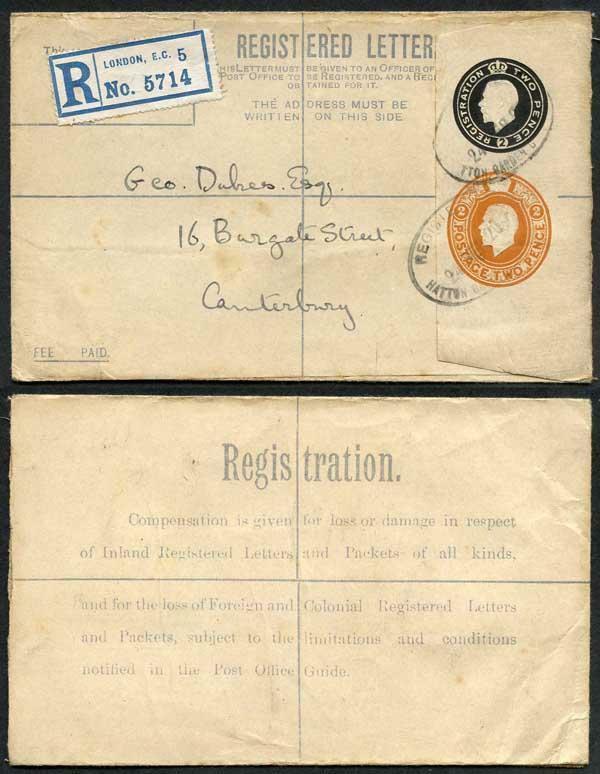 This
REGISTERED LETTER
THIS LETTER MUST BE GIVEN TO AN OFFICER OF
POST OFFICE TO BE REGISTERED, AND A RECEI
OBTAINED FOR IT.
THE ADDRESS MUST BE
WRITTEN ON THIS SIDE
R LONDON, E.C. 5
No. 5714
REGISTRATION TWO PENCE
2
24
TTON GARDEN
POSTAGE TWO PENCE
2 2
REGIST
HATTON
Geo. Dukes. Esq.
16, Burgate Street,
Canterbury
FEE PAID.
Registration.
Compensation is given for loss or damage in respect
of Inland Registered Letters and Packets of all kinds,
and for the loss of Foreign and Colonial Registered Letters
and Packets, subject to the limitations and conditions
notified in the Post Office Guide.